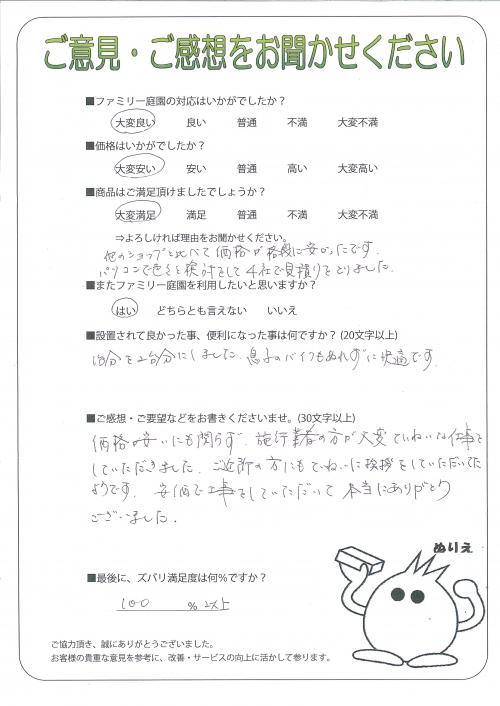 ご意見・ご感想をお聞かせください
■ファミリー庭園の対応はいかがでしたか？
大変良い 良い 普通 不満 大変不満
■価格はいかがでしたか？
大変安い 安い 普通 高い 大変高い
■商品はご満足頂けましたでしょうか？
大変満足 満足 普通 不満 大変不満
⇒よろしければ理由をお聞かせください。
他のショップと比べて価格が格段に安かったです。
パソコンで色々と検討をして4社で見積りをとりました。
■またファミリー庭園を利用したいと思いますか？
はい どちらとも言えない いいえ
■設置されて良かった事、便利になった事は何ですか？(20文字以上)
1台分を2台分にしました。息子のバイクもぬれずに快適です。
■ご感想・ご要望などをお書きくださいませ。(30文字以上)
価格が安いにも関らず、施行業者の方が大変ていねいな仕事を
していただきました。ご近所の方にもていねいに挨拶をしていただいた
ようです。安価で工事をしていただいて本当にありがとう
ございました。
ぬりえ
■最後に、ズバリ満足度は何％ですか？
100 %以上
ご協力頂き、誠にありがとうございました。
お客様の貴重な意見を参考に、改善・サービスの向上に活かして参ります。